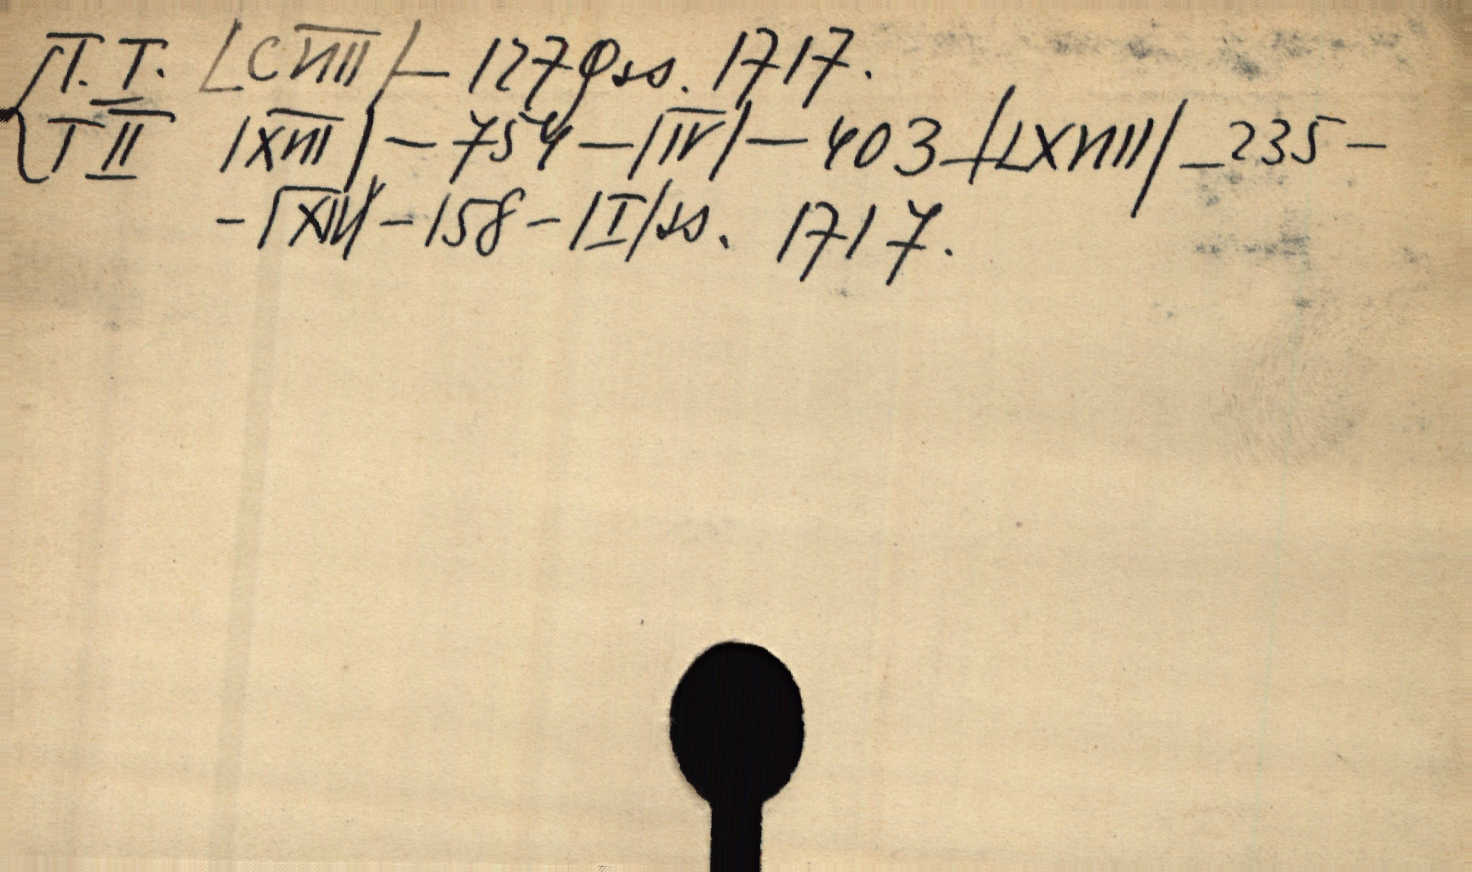 T. I. [CVIII] — 1279 ss. 1717.
T II [XVII] — 754 — [IV] — 403 — [LXVIII] — 235 —
- [XIV] - 158 - [I] ss. 1717.